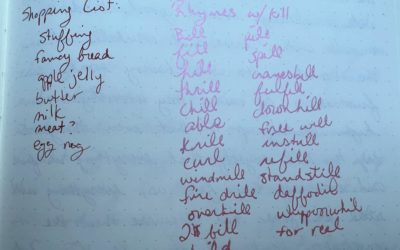 Shopping List:
stuffing
fancy bread
apple jelly
butter
milk
meat?
egg nog
Rhymes w/ kill
Bill
fill
thrill
chill
able
krill
curl
windmill
fire drill
overkill
2$ bill
pill
spill
fulfill
downhill
free will
install
refill
standstill
daffodil
whipporwhil
for real